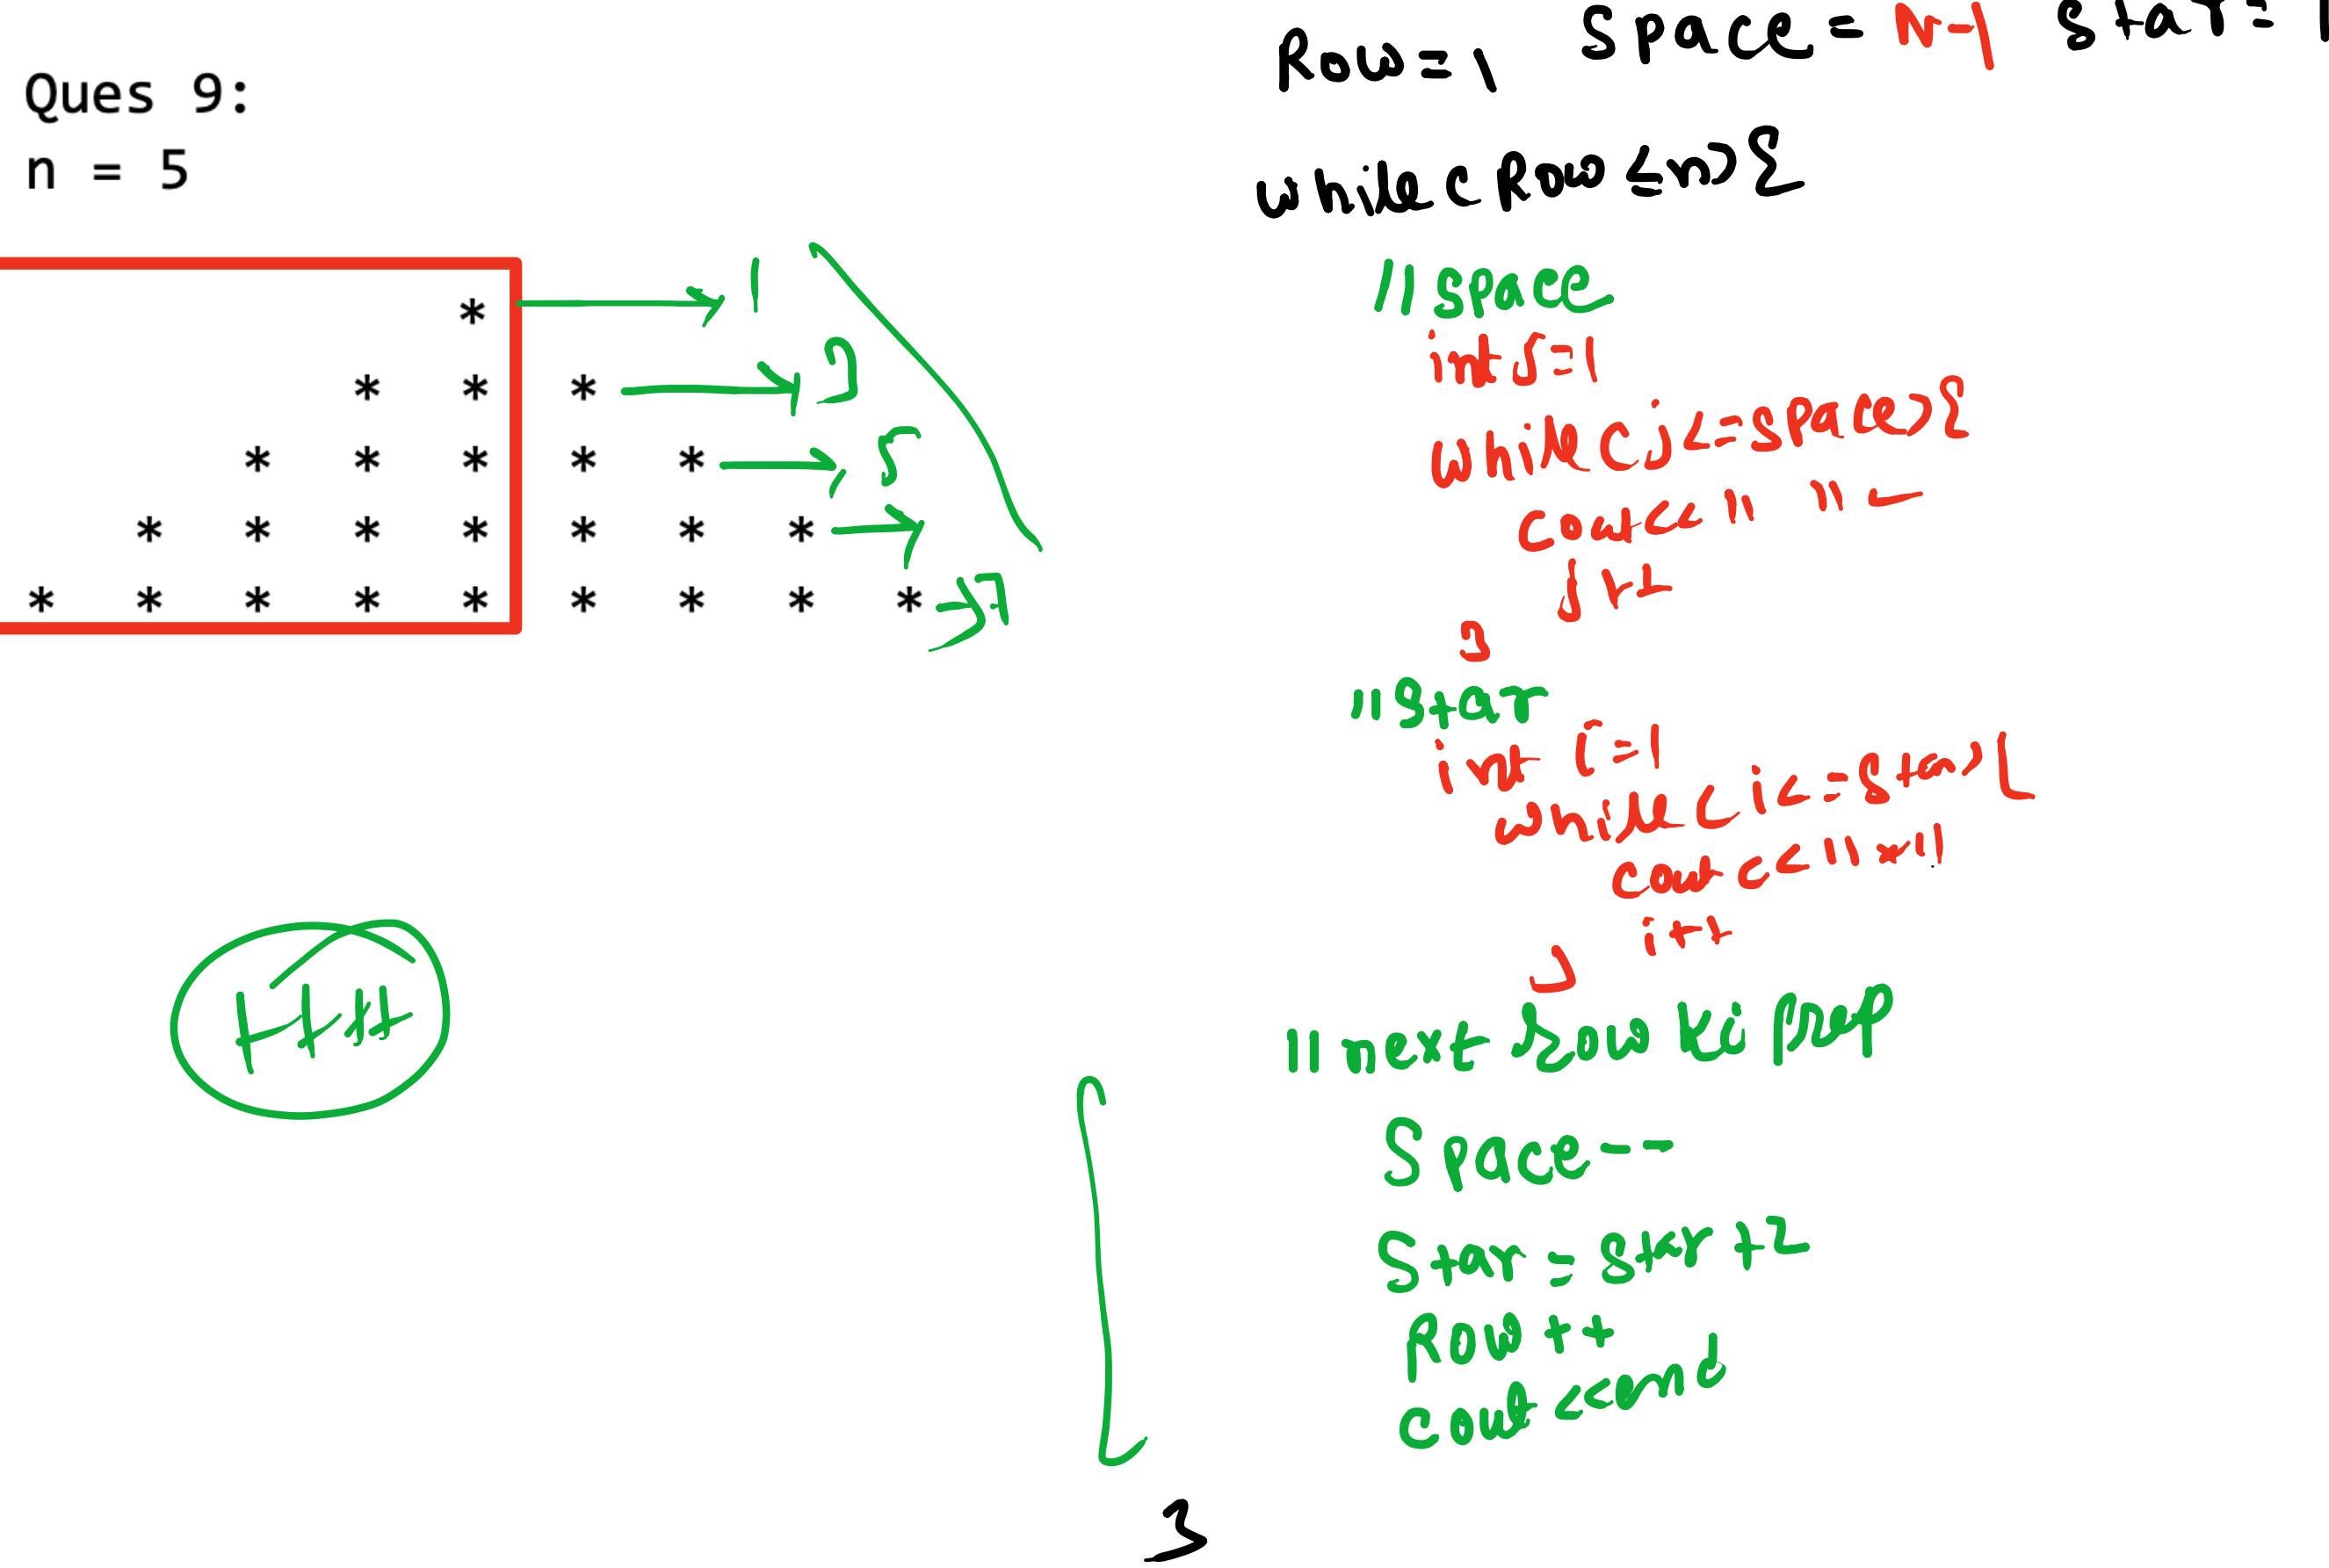 Ques 9:
n = 5
* 1
* * * 3
* * * * * 5
* * * * * * *
* * * * * * * * * 7
Row=1, Space = N-1 star=1
while(Row<=n){
//space
int j=1
while(j<=space){
cout<<" "
j++
}
//star
int i=1
while(i<=star){
cout<<"*"
i++
}
//next row ki prep
Space--
Star=star+2
Row++
cout<<endl
}